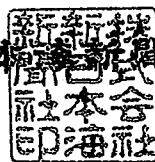 株式会社
新日本海
新聞社印